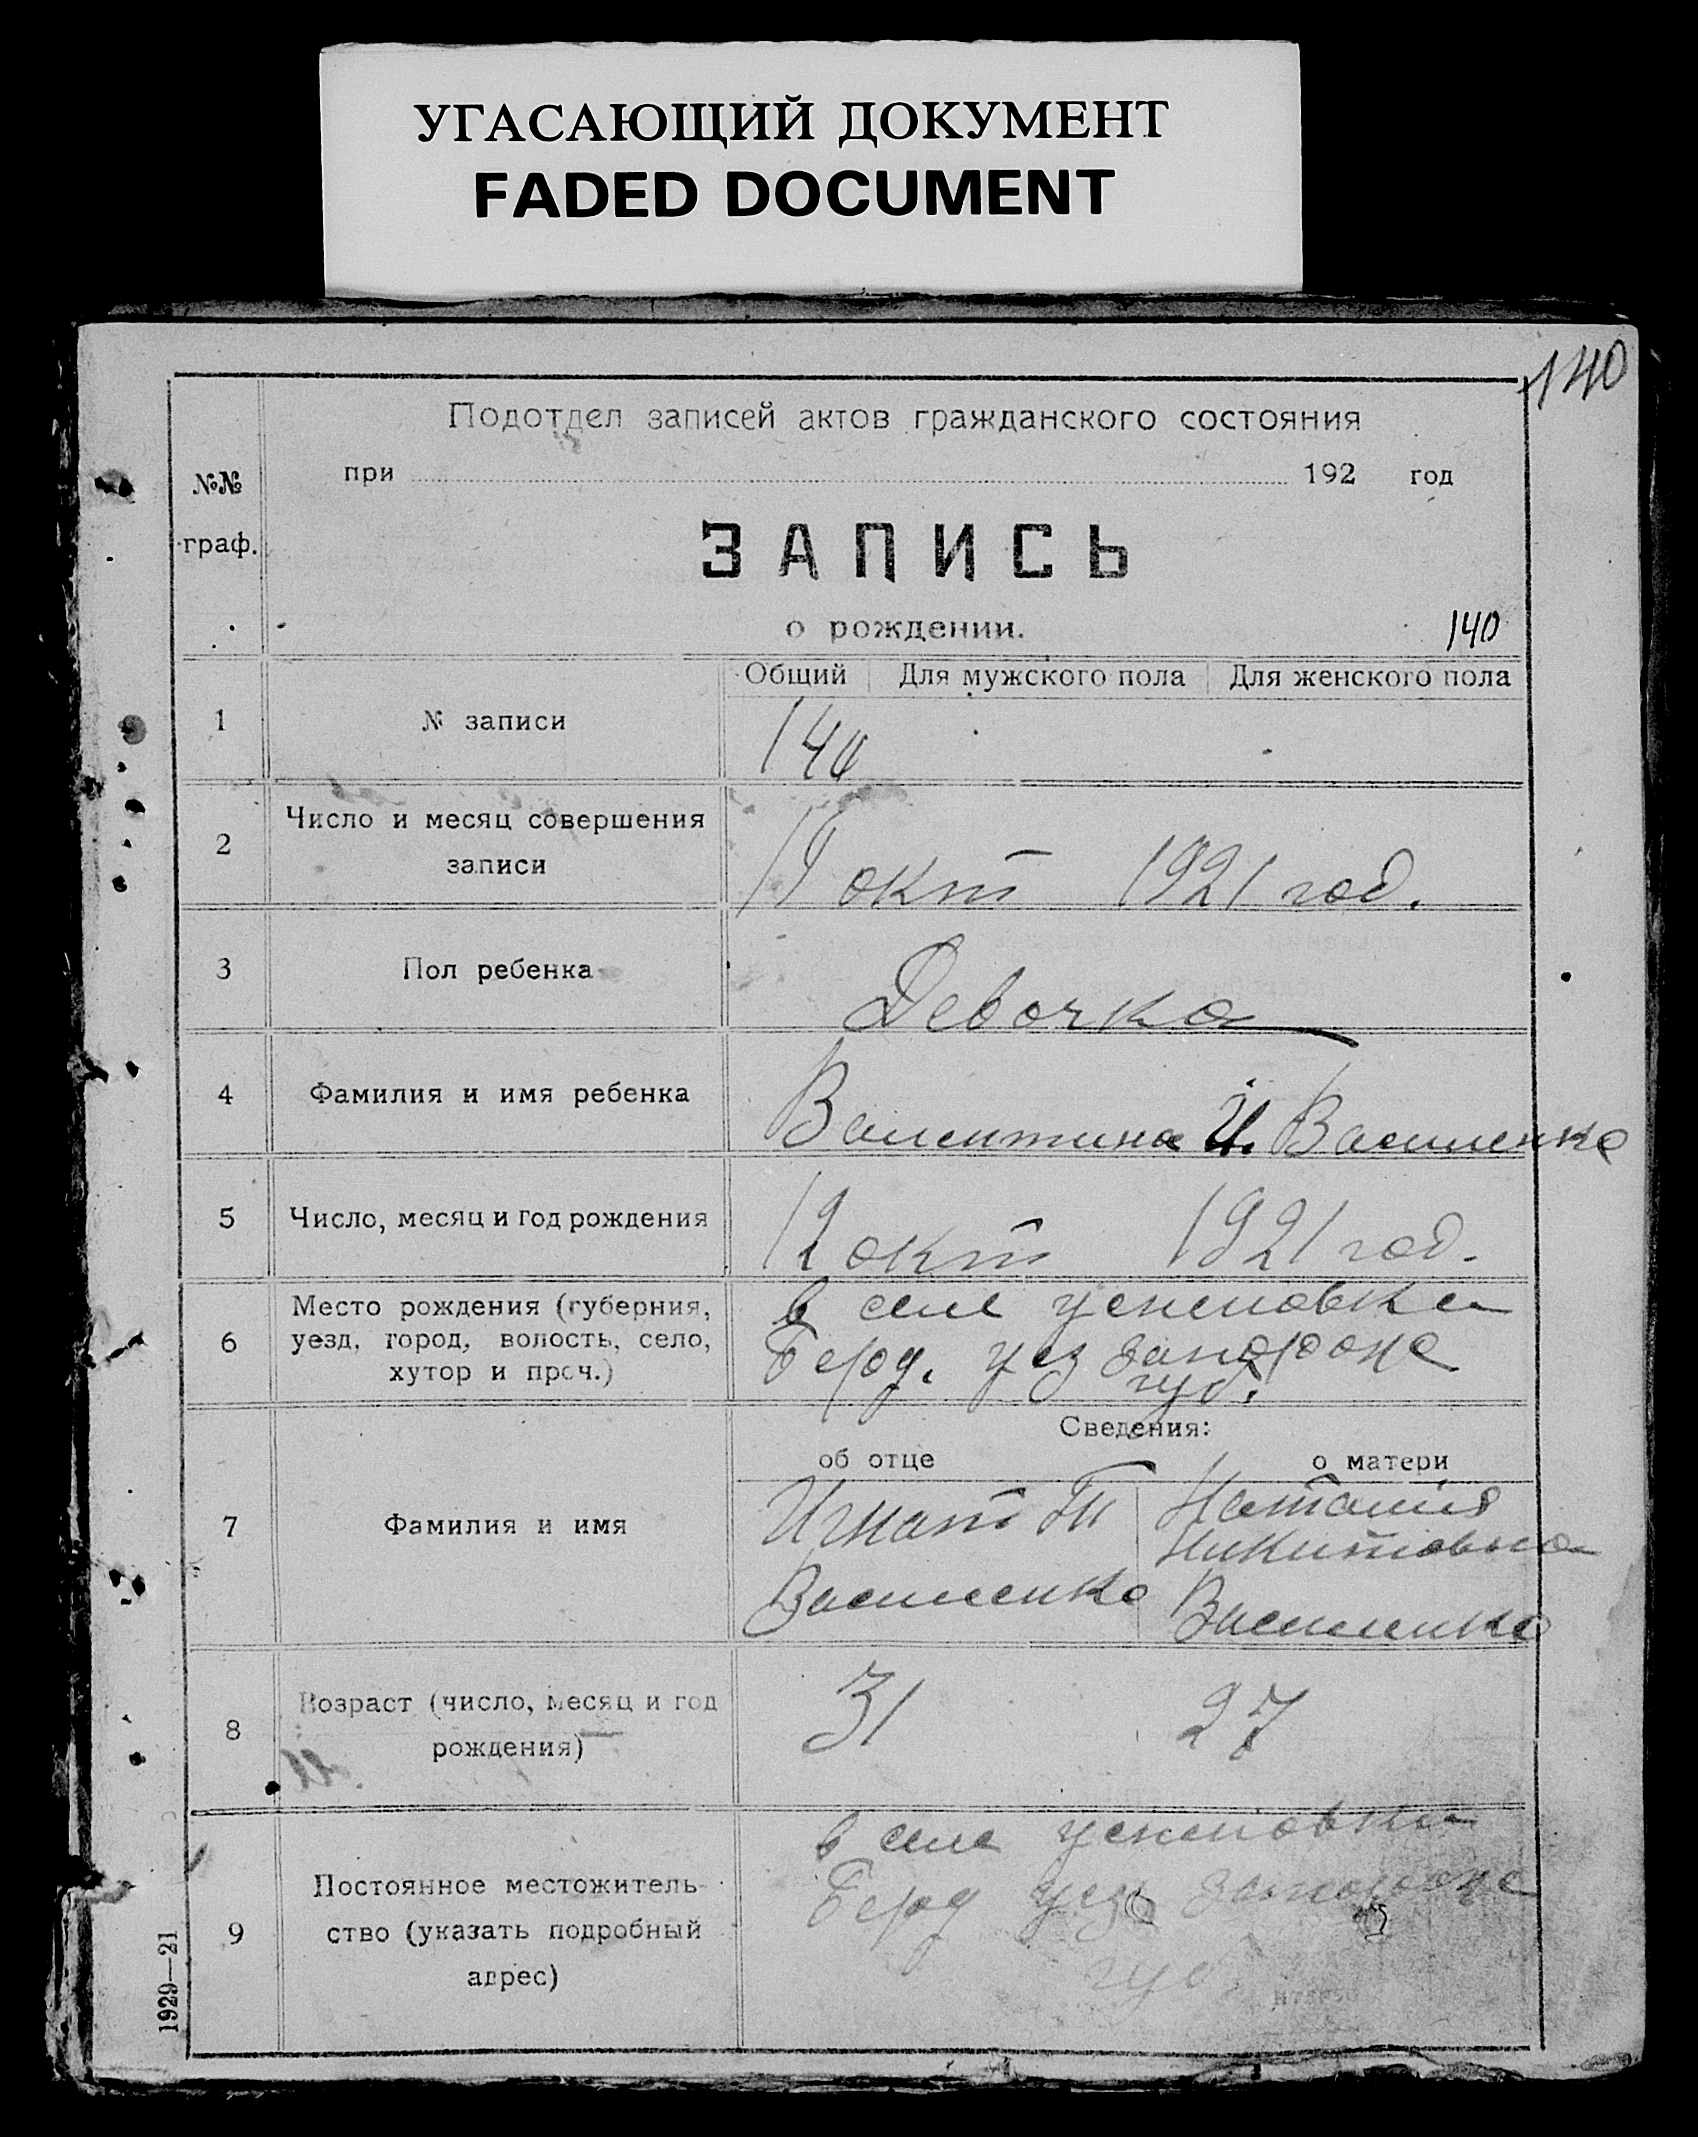 УГАСАЮЩИЙ ДОКУМЕНТ
FADED DOCUMENT
140
Подотдел записей актов гражданского состояния
при 192 год
№№
граф.
ЗАПИСЬ
о рождении.
140
Общий Для мужского пола Для женского пола
1 № записи
140
2 Число и месяц совершения
записи
окт 1921 год.
3 Пол ребенка
Девочка
4 Фамилия и имя ребенка
Валентина И. Василенко
5 Число, месяц и год рождения
12 окт 1921 год.
6 Место рождения (губерния,
уезд, город, волость, село,
хутор и проч.)
в селе Успеновка
Берд. уез Запорож
губ.
Сведения:
об отце о матери
7 Фамилия и имя
Игнат Василенко
Наталия
Никитовна
Василенко
8 Возраст (число, месяц и год
рождения)
31 27
9 Постоянное местожитель-
ство (указать подробный
адрес)
в селе Успеновка
Берд уез Запорож
губ.
1929—21